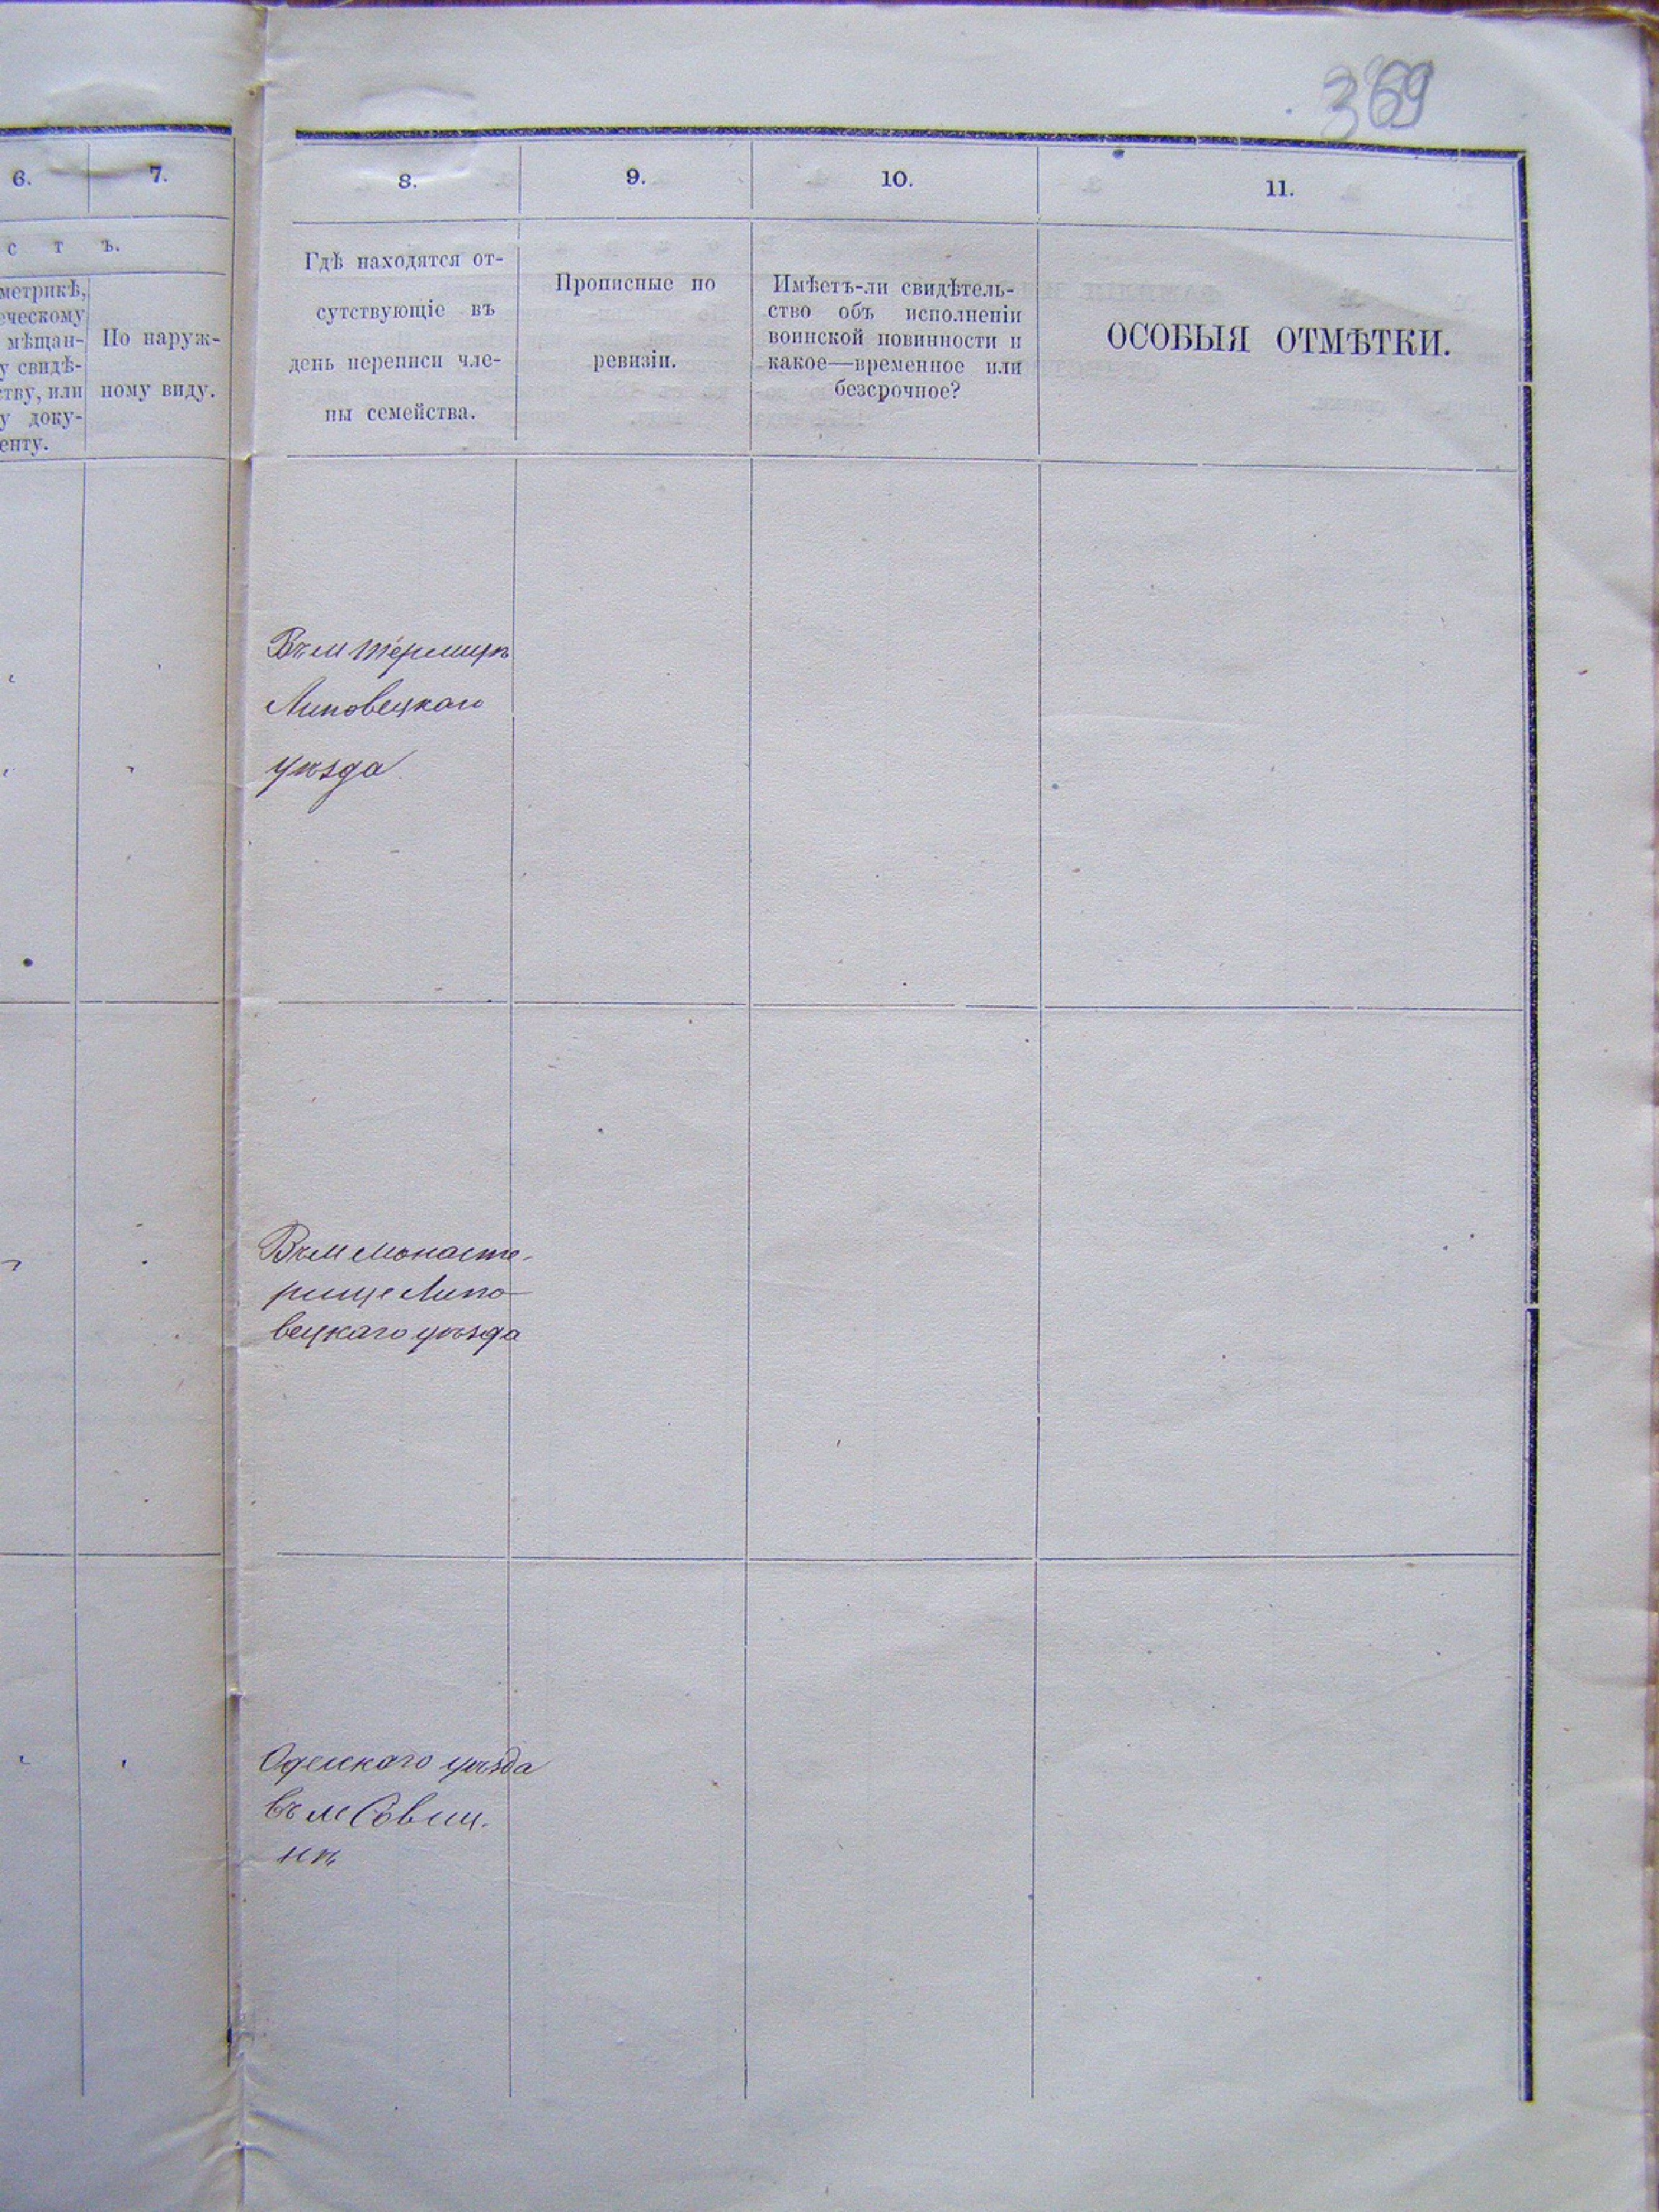 369
6.
7.
8.
9.
10.
11.
с т ъ.
метрикѣ,
еческому
мѣщан-
у свидѣ-
ству, или
у доку-
енту.
По наруж-
ному виду.
Гдѣ находятся от-
сутствующіе въ
день переписи чле-
ны семейства.
Прописные по
ревизіи.
Имѣетъ-ли свидѣтель-
ство объ исполненіи
воинской повинности и
какое—временное или
безсрочное?
ОСОБЫЯ ОТМѢТКИ.
Въ м
Липовецкаго
уѣзда
Въ м Монасте-
рище Липо-
вецкаго уѣзда
Одесскаго уѣзда
въ м